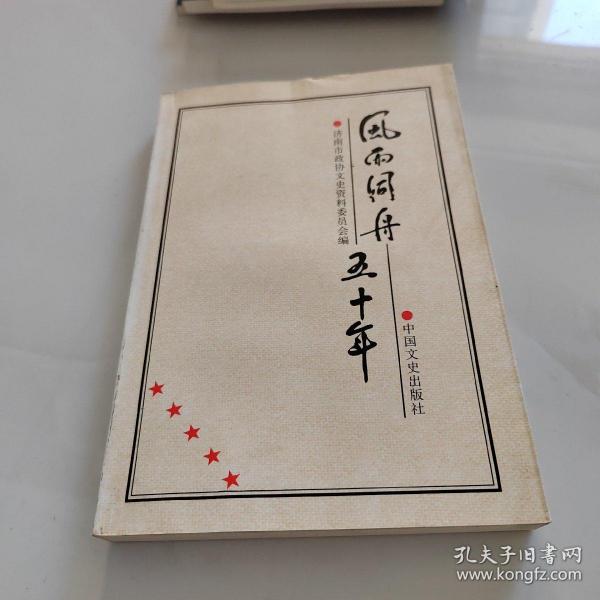 風雨同舟
五十年
济南市政协文史资料委员会编
中国文史出版社
孔夫子旧书网
www.kongfz.com